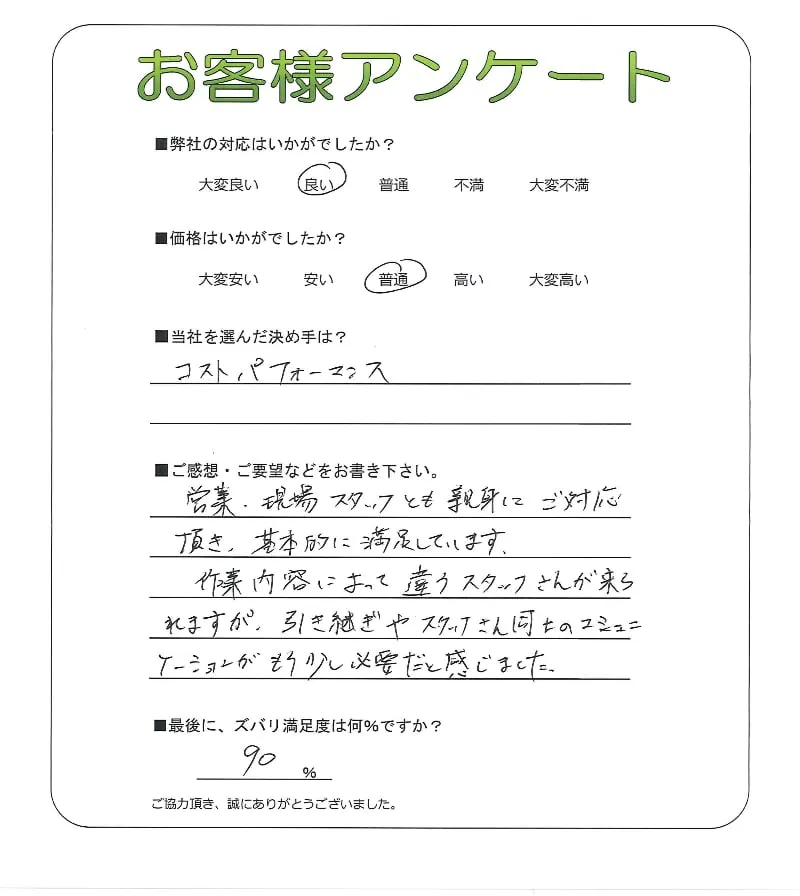 お客様アンケート
■弊社の対応はいかがでしたか？
大変良い 良い 普通 不満 大変不満
■価格はいかがでしたか？
大変安い 安い 普通 高い 大変高い
■当社を選んだ決め手は？
コストパフォーマンス
■ご感想・ご要望などをお書き下さい。
営業、現場スタッフとも親身にご対応
頂き、基本的に満足しています。
作業内容によって違うスタッフさんが来ら
れますが、引き継ぎやスタッフさん同士のコミュニ
ケーションがもう少し必要だと感じました。
■最後に、ズバリ満足度は何%ですか？
90 %
ご協力頂き、誠にありがとうございました。